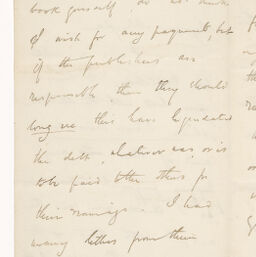 book yourself, do not think
I wish for any payment, but
if the publishers are
responsible, then they should
long ere this have liquidated
the debt, whatever was, or is
to be paid to them for
their earnings. I had
many letters from them